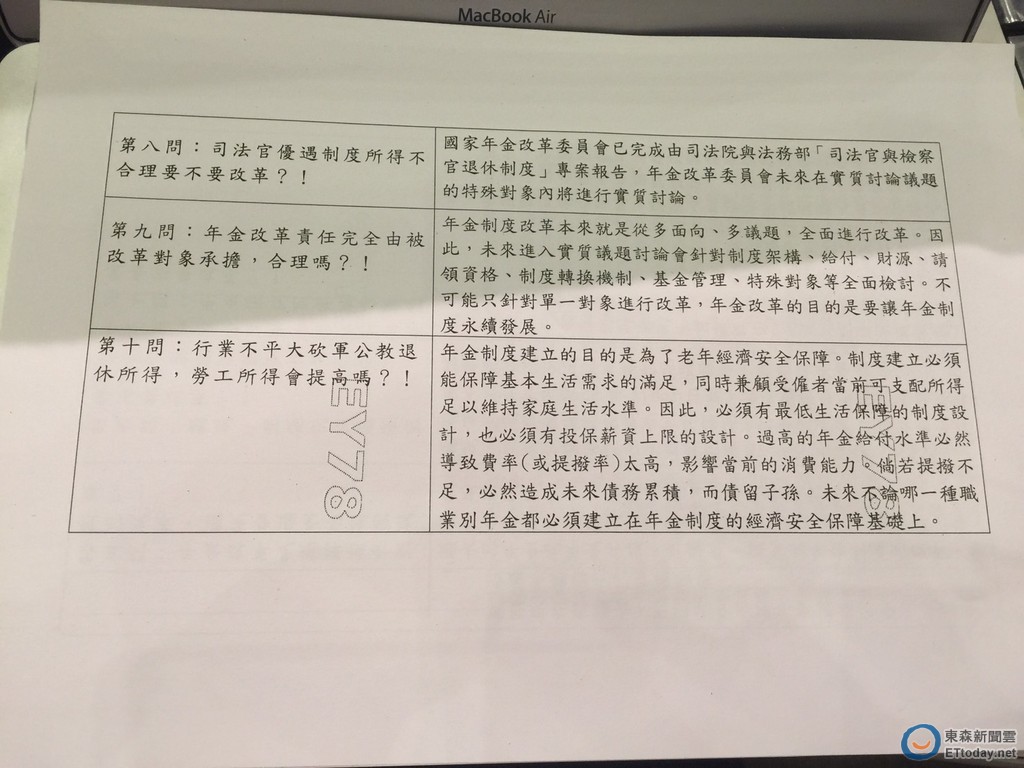 MacBook Air
第八問：司法官優遇制度所得不
合理要不要改革？！
國家年金改革委員會已完成由司法院與法務部「司法官與檢察
官退休制度」專案報告，年金改革委員會未來在實質討論議題
的特殊對象內將進行實質討論。
第九問：年金改革責任完全由被
改革對象承擔，合理嗎？！
年金制度改革本來就是從多面向、多議題，全面進行改革。因
此，未來進入實質議題討論會針對制度架構、給付、財源、請
領資格、制度轉換機制、基金管理、特殊對象等全面檢討。不
可能只針對單一對象進行改革，年金改革的目的是要讓年金制
度永續發展。
第十問：行業不平大砍軍公教退
休所得，勞工所得會提高嗎？！
年金制度建立的目的是為了老年經濟安全保障。制度建立必須
能保障基本生活需求的滿足，同時兼顧受僱者當前可支配所得
足以維持家庭生活水準。因此，必須有最低生活保障的制度設
計，也必須有投保薪資上限的設計。過高的年金給付水準必然
導致費率(或提撥率)太高，影響當前的消費能力。倘若提撥不
足，必然造成未來債務累積，而債留子孫。未來不論哪一種職
業別年金都必須建立在年金制度的經濟安全保障基礎上。
EY78
EY78
東森新聞雲
ETtoday.net